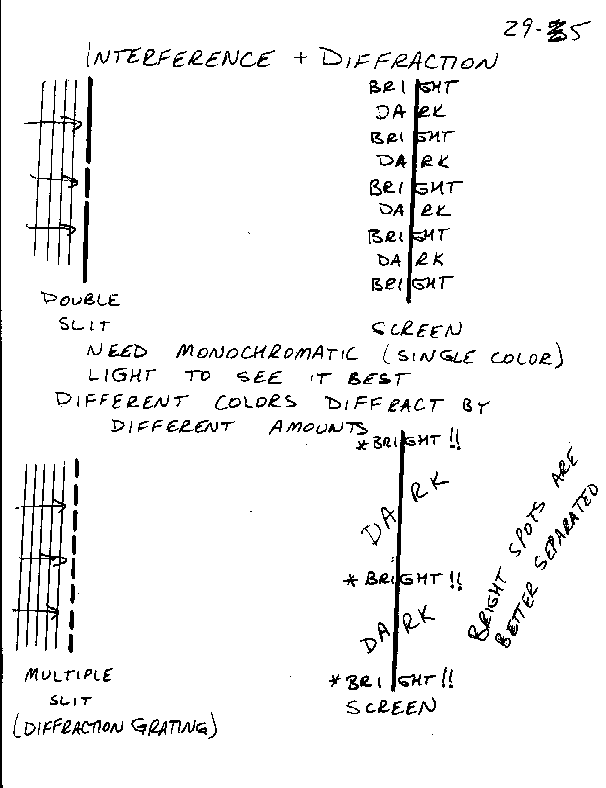 29-5
INTERFERENCE + DIFFRACTION
BRIGHT
DARK
BRIGHT
DARK
BRIGHT
DARK
BRIGHT
DARK
BRIGHT
DOUBLE
SLIT
SCREEN
NEED MONOCHROMATIC (SINGLE COLOR)
LIGHT TO SEE IT BEST
DIFFERENT COLORS DIFFRACT BY
DIFFERENT AMOUNTS
*BRIGHT !!
DARK
*BRIGHT !!
DARK
*BRIGHT !!
SCREEN
BRIGHT SPOTS ARE
BETTER SEPARATED
MULTIPLE
SLIT
(DIFFRACTION GRATING)